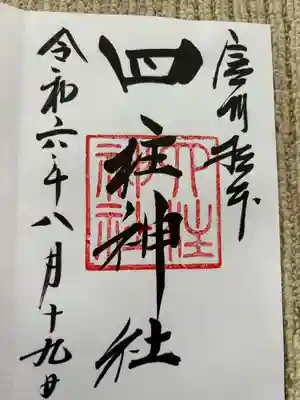 信州松本
四柱神社
四柱神社
令和六年八月十九日